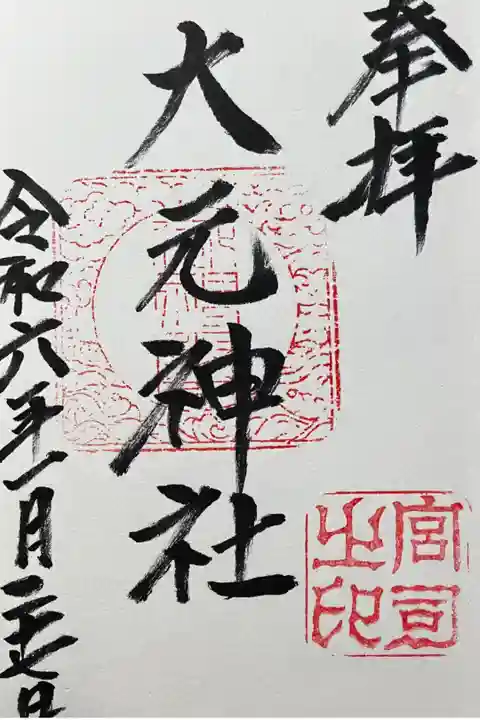 奉拝
大元神社
令和六年一月二十七日
宮司之印